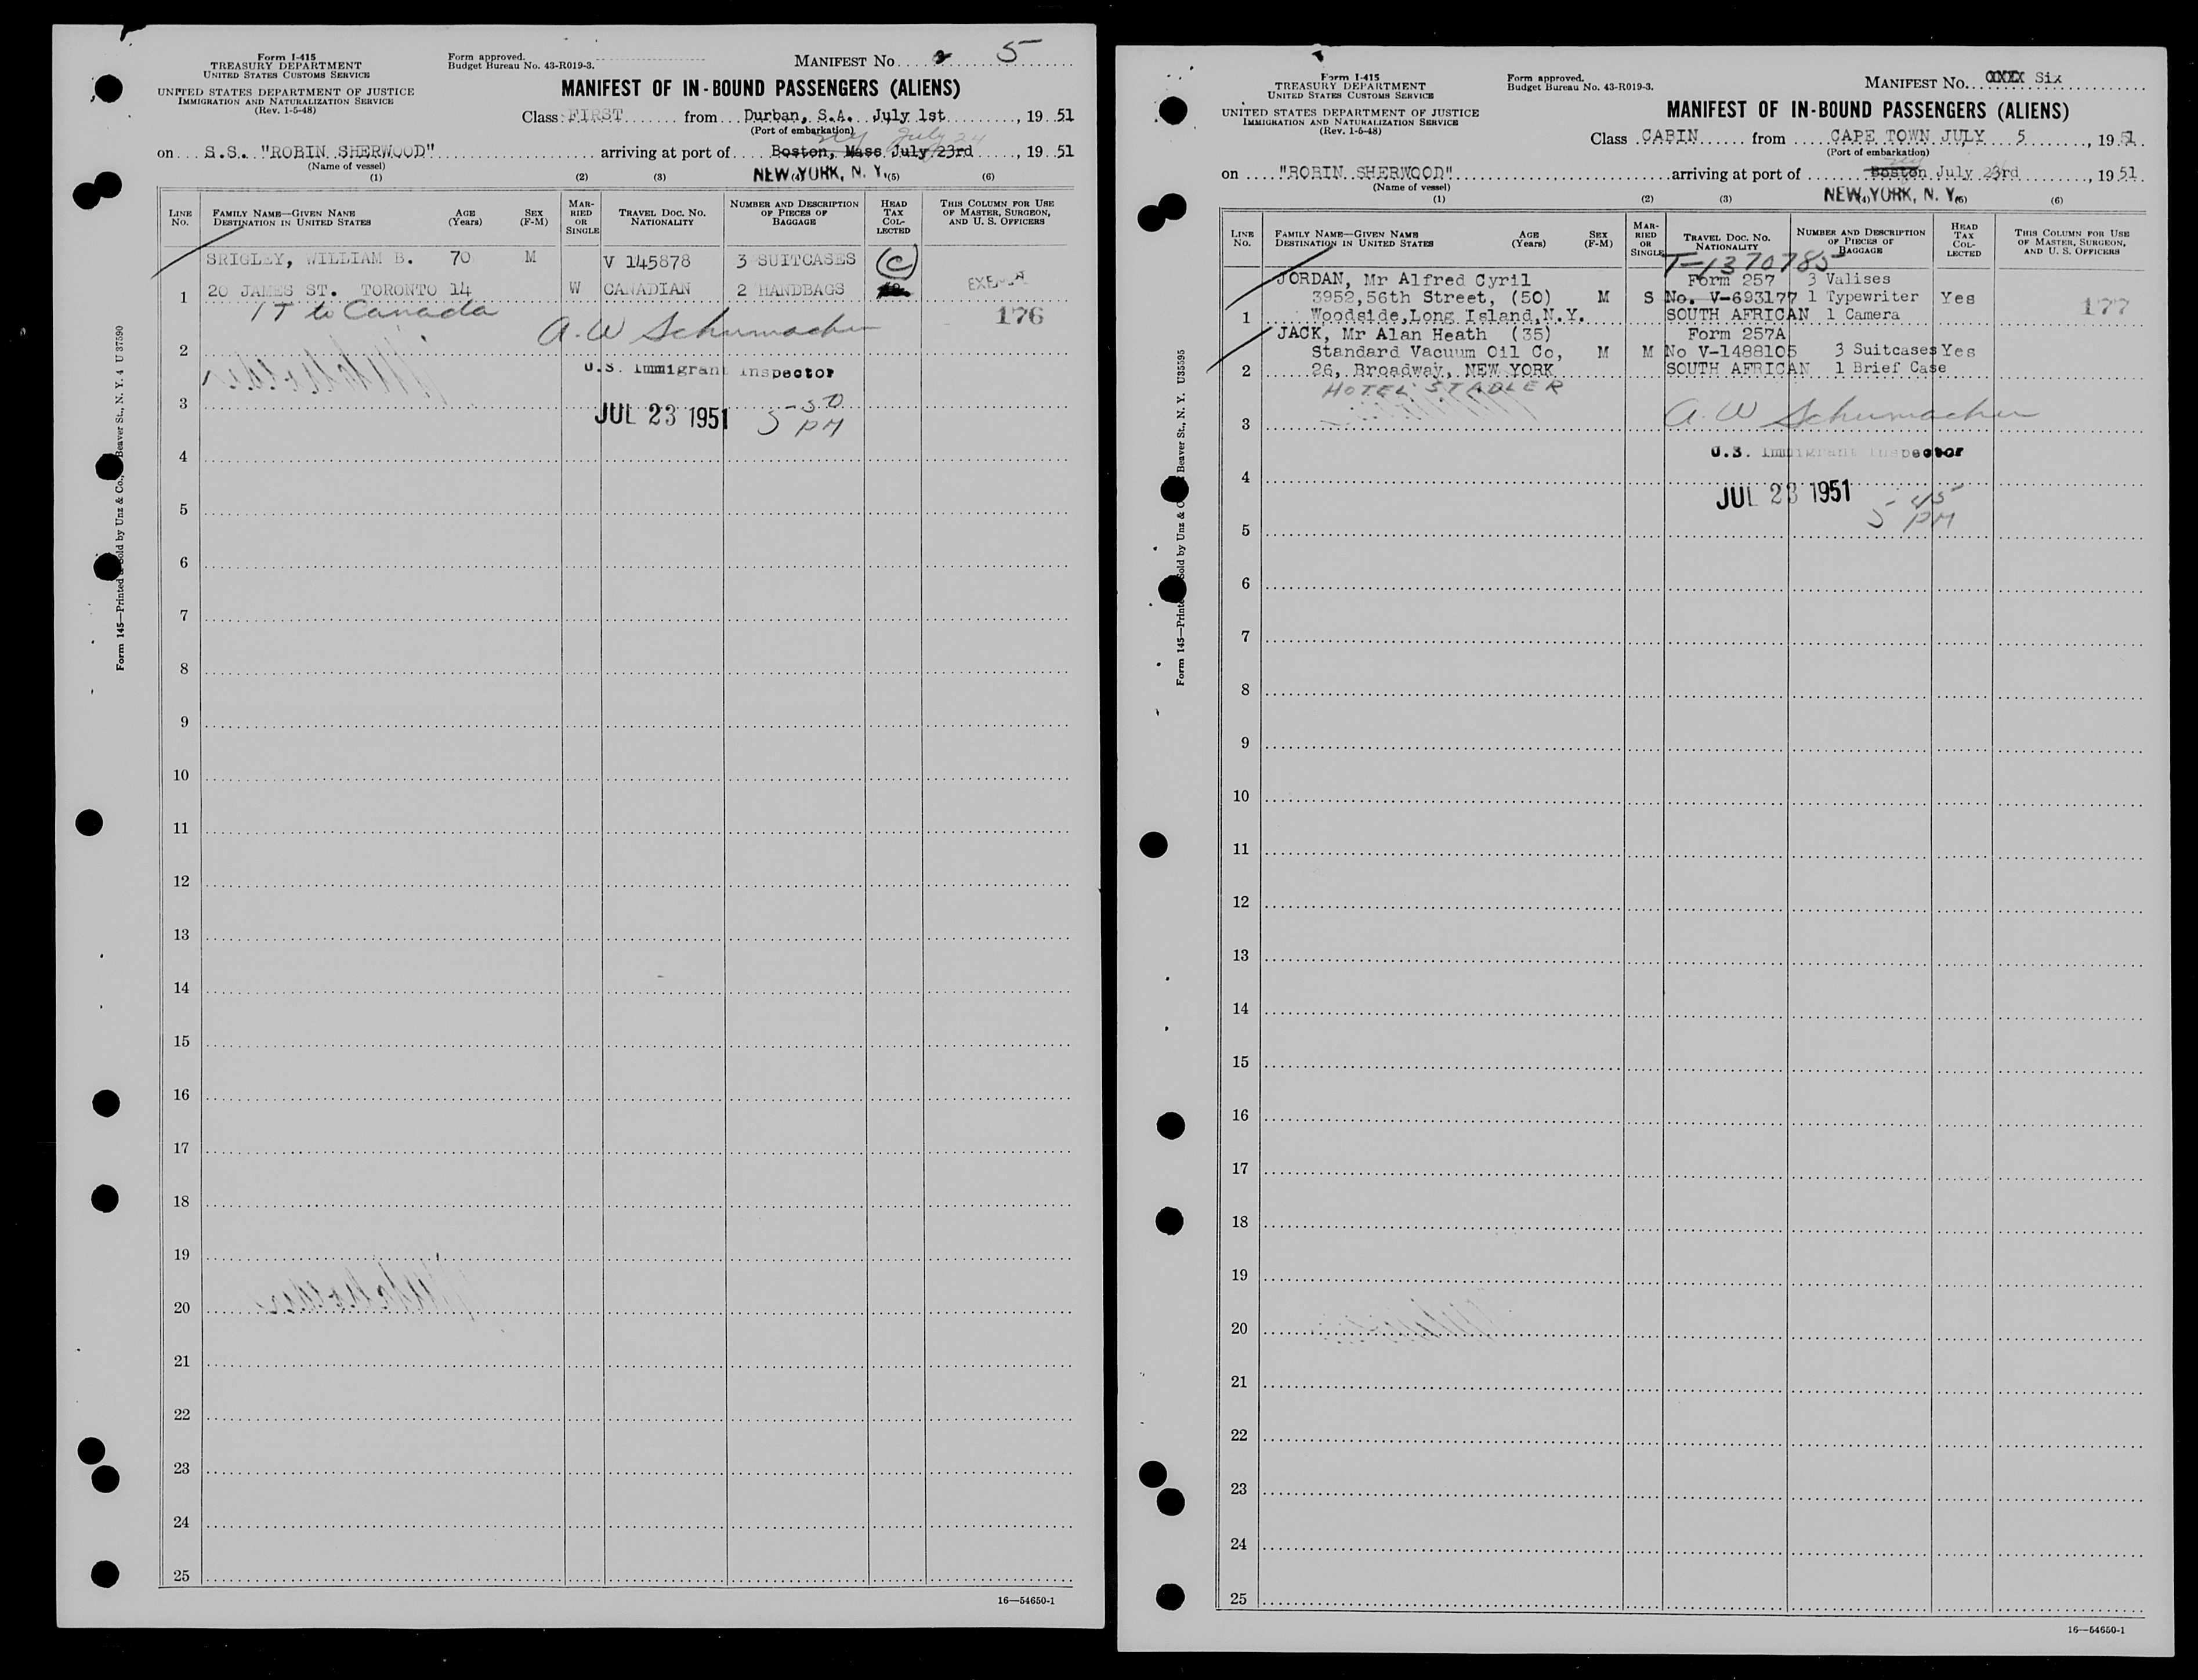 Form I-415
TREASURY DEPARTMENT
UNITED STATES CUSTOMS SERVICE
UNITED STATES DEPARTMENT OF JUSTICE
IMMIGRATION AND NATURALIZATION SERVICE
(Rev. 1-5-48)
Form approved.
Budget Bureau No. 43-R019-3.
MANIFEST No 5
MANIFEST OF IN-BOUND PASSENGERS (ALIENS)
Class FIRST from Durban, S.A. July 1st, 19 51
(Port of embarkation)
NY July 24
on S.S. "ROBIN SHERWOOD" arriving at port of Boston, Mass July 23rd, 19 51
(Name of vessel)
NEW YORK, N. Y.
(1) (2) (3) (4) (5) (6)
LINE No. FAMILY NAME—GIVEN NAME DESTINATION IN UNITED STATES AGE (Years) SEX (F-M) MARRIED OR SINGLE TRAVEL DOC. NO. NATIONALITY NUMBER AND DESCRIPTION OF PIECES OF BAGGAGE HEAD TAX COLLECTED THIS COLUMN FOR USE OF MASTER, SURGEON, AND U. S. OFFICERS
SRIGLEY, WILLIAM B. 70 M V 145878 3 SUITCASES C
1 20 JAMES ST. TORONTO 14 W CANADIAN 2 HANDBAGS
IT to Canada 176
A. W Schumacher
2
U.S. Immigrant Inspector
3 JUL 23 1951 5-50 PM
4
5
6
7
8
9
10
11
12
13
14
15
16
17
18
19
20
21
22
23
24
25
16—54650-1
Form 145—Printed & Sold by Unz & Co., Beaver St., N. Y. 4 U 37590
Form I-415
TREASURY DEPARTMENT
UNITED STATES CUSTOMS SERVICE
UNITED STATES DEPARTMENT OF JUSTICE
IMMIGRATION AND NATURALIZATION SERVICE
(Rev. 1-5-48)
Form approved.
Budget Bureau No. 43-R019-3.
MANIFEST No. XXXX Six
MANIFEST OF IN-BOUND PASSENGERS (ALIENS)
Class CABIN from CAPE TOWN JULY 5, 19 51
(Port of embarkation)
NY
on "ROBIN SHERWOOD" arriving at port of Boston July 23rd, 19 51
(Name of vessel)
NEW YORK, N. Y.
(1) (2) (3) (4) (5) (6)
LINE No. FAMILY NAME—GIVEN NAME DESTINATION IN UNITED STATES AGE (Years) SEX (F-M) MARRIED OR SINGLE TRAVEL DOC. NO. NATIONALITY NUMBER AND DESCRIPTION OF PIECES OF BAGGAGE HEAD TAX COLLECTED THIS COLUMN FOR USE OF MASTER, SURGEON, AND U. S. OFFICERS
T-1370785
JORDAN, Mr Alfred Cyril Form 257 3 Valises
3952,56th Street, (50) M S No. V-693177 1 Typewriter Yes 177
1 Woodside,Long Island,N.Y. SOUTH AFRICAN 1 Camera
JACK, Mr Alan Heath (35) Form 257A
Standard Vacuum Oil Co, M M No V-1488105 3 Suitcases Yes
2 26, Broadway, NEW YORK SOUTH AFRICAN 1 Brief Case
HOTEL STADLER
A. W Schumacher
3
U.S. Immigrant Inspector
4
JUL 23 1951 5-45 PM
5
6
7
8
9
10
11
12
13
14
15
16
17
18
19
20
21
22
23
24
25
16—54650-1
Form 145—Printed Sold by Unz & Beaver St., N. Y. U35595